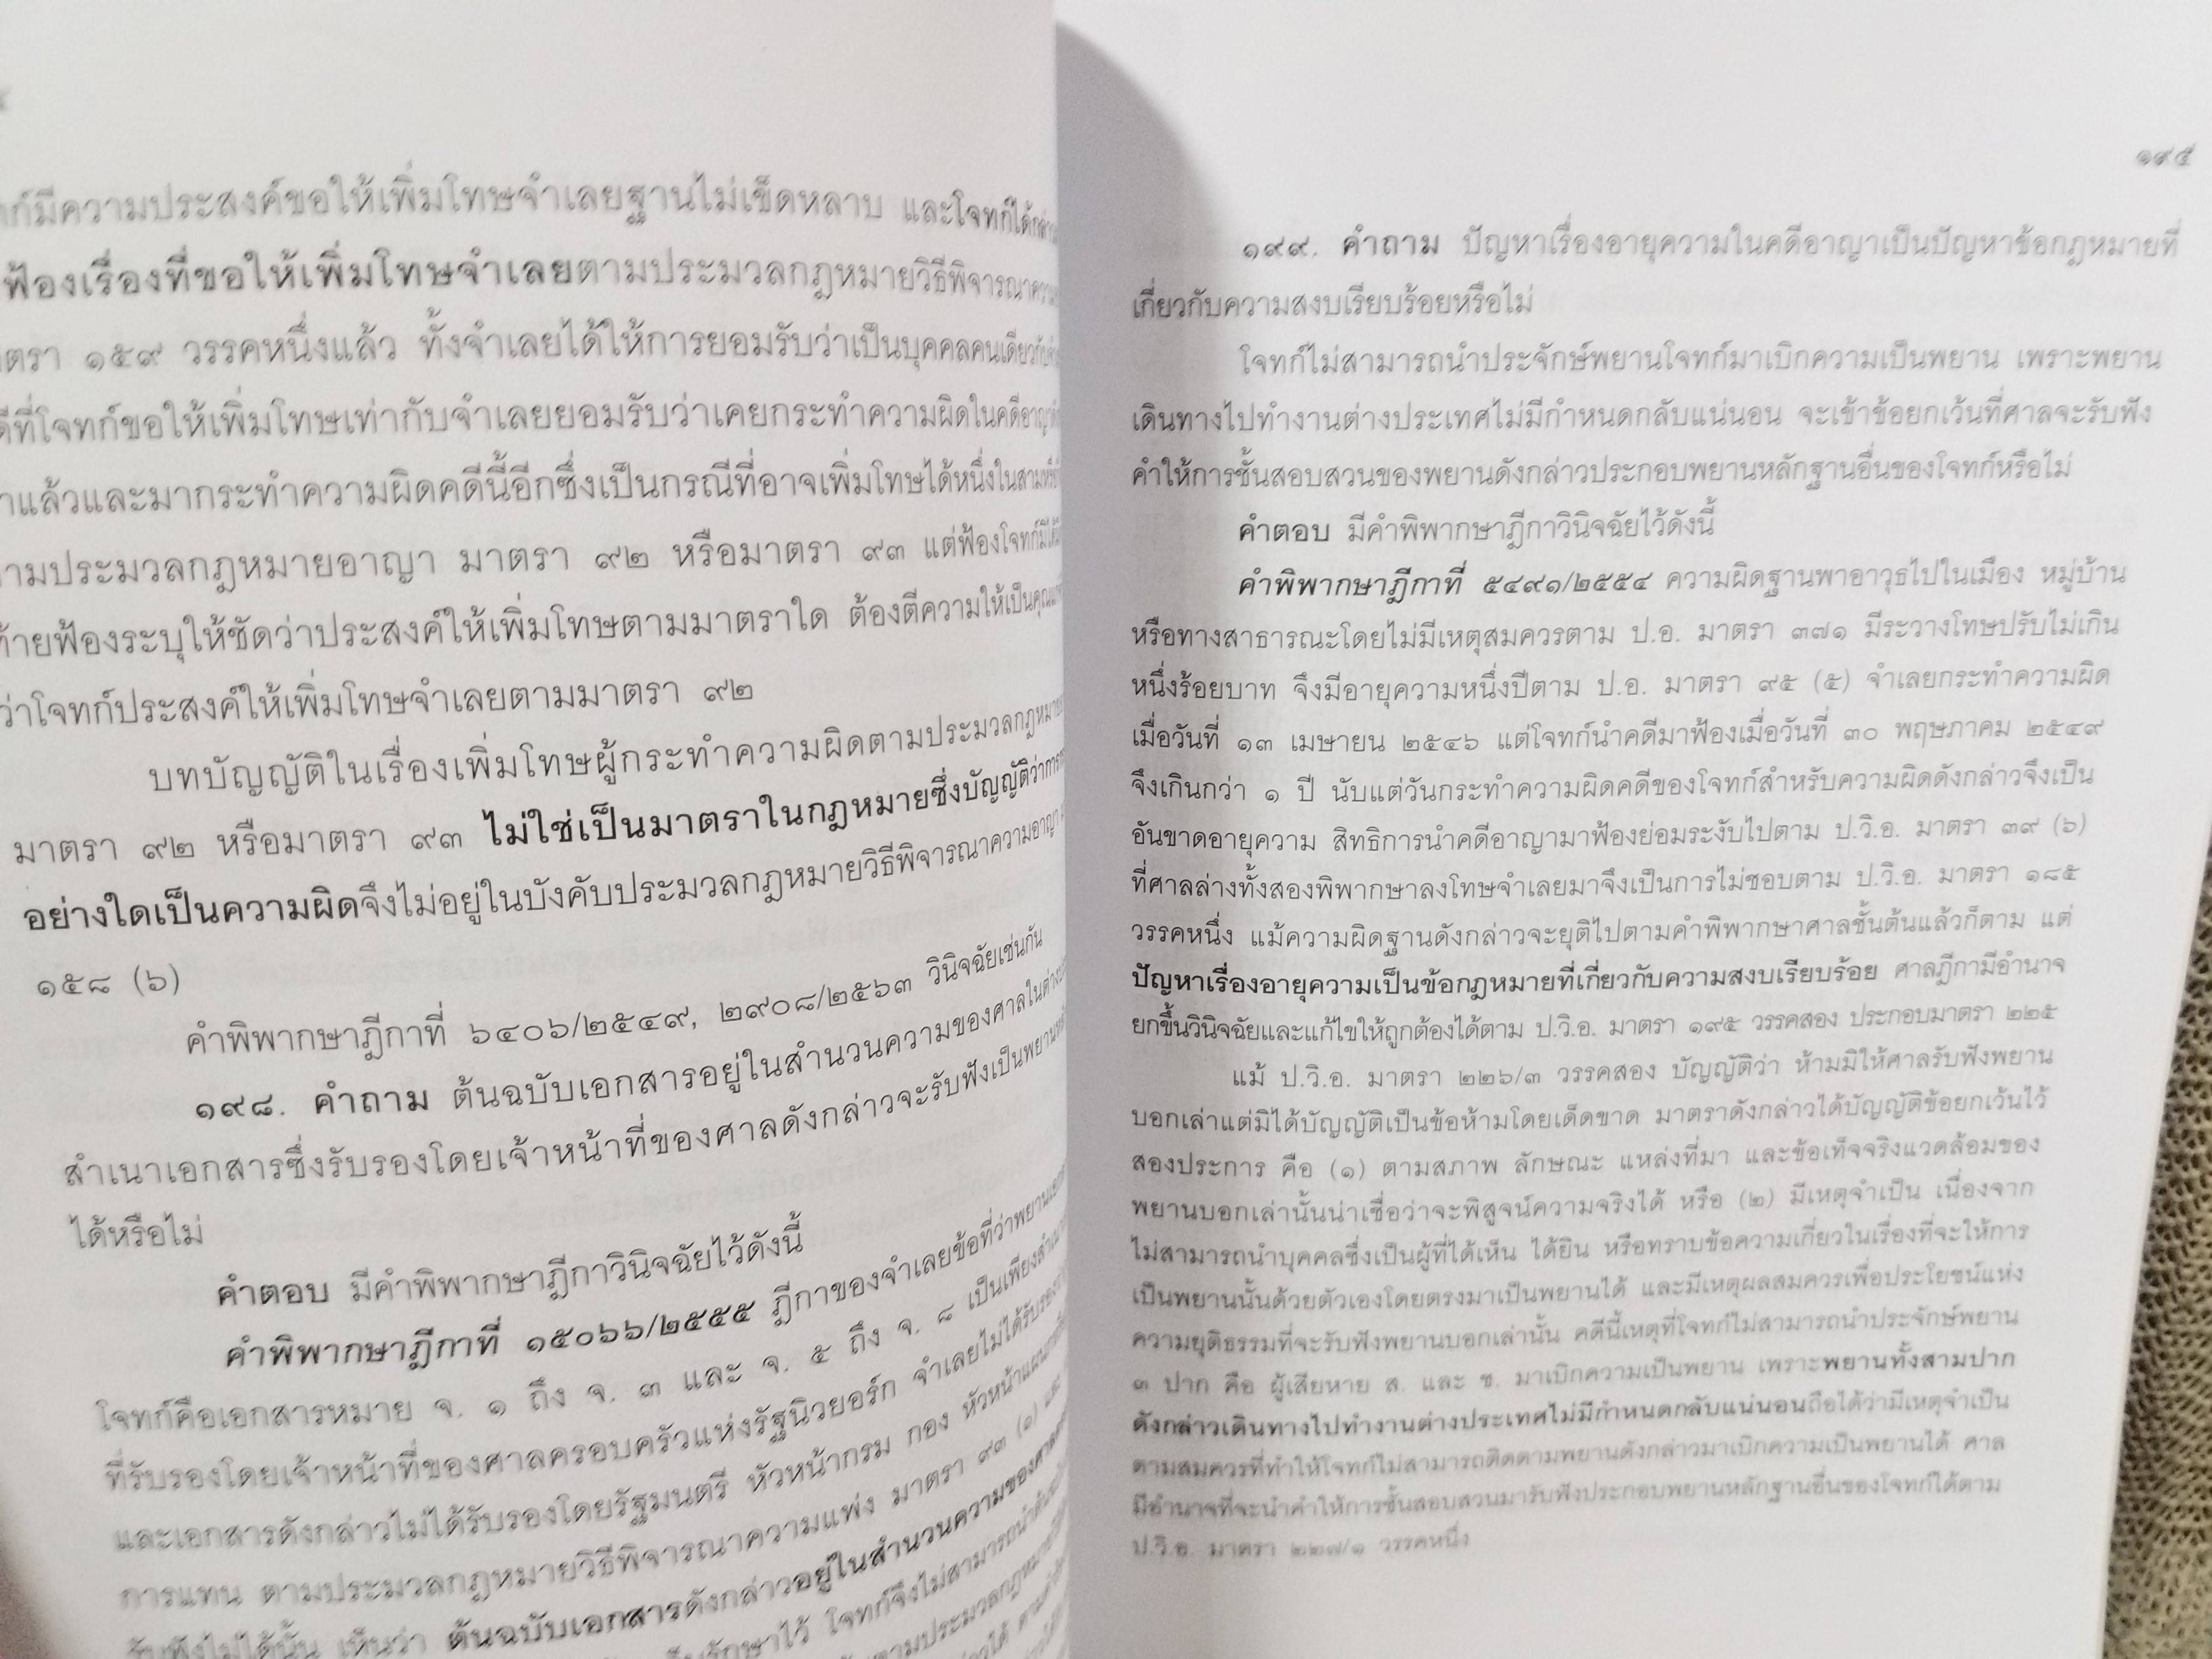 มีความประสงค์ขอให้เพิ่มโทษจำเลยฐานไม่เข็ดหลาบ และโจทก์ได้
ฟ้องเรื่องที่ขอให้เพิ่มโทษจำเลยตามประมวลกฎหมายวิธีพิจารณา
๑๕๙ วรรคหนึ่งแล้ว ทั้งจำเลยได้ให้การยอมรับว่าเป็นบุคคลคนเดียวกับ
ที่โจทก์ขอให้เพิ่มโทษเท่ากับจำเลยยอมรับว่าเคยกระทำความผิดในคดีอาญา
แล้วและมากระทำความผิดคดีนี้อีกซึ่งเป็นกรณีที่อาจเพิ่มโทษได้หนึ่งในสาม
ตามประมวลกฎหมายอาญา มาตรา ๙๒ หรือมาตรา ๙๓ แต่ฟ้องโจทก์มิได้
ท้ายฟ้องระบุให้ชัดว่าประสงค์ให้เพิ่มโทษตามมาตราใด ต้องตีความให้เป็นคุณ
ว่าโจทก์ประสงค์ให้เพิ่มโทษจำเลยตามมาตรา ๙๒
บทบัญญัติในเรื่องเพิ่มโทษผู้กระทำความผิดตามประมวลกฎหมาย
มาตรา ๙๒ หรือมาตรา ๙๓ ไม่ใช่เป็นมาตราในกฎหมายซึ่งบัญญัติว่าการ
อย่างใดเป็นความผิดจึงไม่อยู่ในบังคับประมวลกฎหมายวิธีพิจารณาความอาญา
๑๕๘ (๖)
คำพิพากษาฎีกาที่ ๖๔๐๖/๒๕๔๙, ๒๙๐๘/๒๕๖๓ วินิจฉัยเช่นกัน
๑๙๘. คำถาม ต้นฉบับเอกสารอยู่ในสำนวนความของศาลในต่าง
สำเนาเอกสารซึ่งรับรองโดยเจ้าหน้าที่ของศาลดังกล่าวจะรับฟังเป็นพยาน
ได้หรือไม่
คำตอบ มีคำพิพากษาฎีกาวินิจฉัยไว้ดังนี้
คำพิพากษาฎีกาที่ ๑๕๐๖๖/๒๕๕๕ ฎีกาของจำเลยข้อที่ว่าพยาน
โจทก์คือเอกสารหมาย จ. ๑ ถึง จ. ๓ และ จ. ๕ ถึง จ. ๘ เป็นเพียงสำเนา
ที่รับรองโดยเจ้าหน้าที่ของศาลครอบครัวแห่งรัฐนิวยอร์ก จำเลยไม่ได้รับรอง
และเอกสารดังกล่าวไม่ได้รับรองโดยรัฐมนตรี หัวหน้ากรม กอง หัวหน้าแผนก
การแทน ตามประมวลกฎหมายวิธีพิจารณาความแพ่ง มาตรา ๙๓ และ
รับฟังไม่ได้นั้น เห็นว่า ต้นฉบับเอกสารดังกล่าวอยู่ในสำนวนความของศาล
รักษาไว้ โจทก์จึงไม่สามารถนำต้นฉบับ
ตามประมวลกฎหมาย
๑๙๕
๑๙๙. คำถาม ปัญหาเรื่องอายุความในคดีอาญาเป็นปัญหาข้อกฎหมายที่
เกี่ยวกับความสงบเรียบร้อยหรือไม่
โจทก์ไม่สามารถนำประจักษ์พยานโจทก์มาเบิกความเป็นพยาน เพราะพยาน
เดินทางไปทำงานต่างประเทศไม่มีกำหนดกลับแน่นอน จะเข้าข้อยกเว้นที่ศาลจะรับฟัง
คำให้การชั้นสอบสวนของพยานดังกล่าวประกอบพยานหลักฐานอื่นของโจทก์หรือไม่
คำตอบ มีคำพิพากษาฎีกาวินิจฉัยไว้ดังนี้
คำพิพากษาฎีกาที่ ๕๔๙๑/๒๕๕๔ ความผิดฐานพาอาวุธไปในเมือง หมู่บ้าน
หรือทางสาธารณะโดยไม่มีเหตุสมควรตาม ป.อ. มาตรา ๓๗๑ มีระวางโทษปรับไม่เกิน
หนึ่งร้อยบาท จึงมีอายุความหนึ่งปีตาม ป.อ. มาตรา ๙๕ (๕) จำเลยกระทำความผิด
เมื่อวันที่ ๑๓ เมษายน ๒๕๔๖ แต่โจทก์นำคดีมาฟ้องเมื่อวันที่ ๓๐ พฤษภาคม ๒๕๔๙
จึงเกินกว่า ๑ ปี นับแต่วันกระทำความผิดคดีของโจทก์สำหรับความผิดดังกล่าวจึงเป็น
อันขาดอายุความ สิทธิการนำคดีอาญามาฟ้องย่อมระงับไปตาม ป.วิ.อ. มาตรา ๓๙ (๖)
ที่ศาลล่างทั้งสองพิพากษาลงโทษจำเลยมาจึงเป็นการไม่ชอบตาม ป.วิ.อ. มาตรา ๑๘๕
วรรคหนึ่ง แม้ความผิดฐานดังกล่าวจะยุติไปตามคำพิพากษาศาลชั้นต้นแล้วก็ตาม แต่
ปัญหาเรื่องอายุความเป็นข้อกฎหมายที่เกี่ยวกับความสงบเรียบร้อย ศาลฎีกามีอำนาจ
ยกขึ้นวินิจฉัยและแก้ไขให้ถูกต้องได้ตาม ป.วิ.อ. มาตรา ๑๙๕ วรรคสอง ประกอบมาตรา ๒๒๕
แม้ ป.วิ.อ. มาตรา ๒๒๖/๓ วรรคสอง บัญญัติว่า ห้ามมิให้ศาลรับฟังพยาน
บอกเล่าแต่มิได้บัญญัติเป็นข้อห้ามโดยเด็ดขาด มาตราดังกล่าวได้บัญญัติข้อยกเว้นไว้
สองประการ คือ (๑) ตามสภาพ ลักษณะ แหล่งที่มา และข้อเท็จจริงแวดล้อมของ
พยานบอกเล่านั้นน่าเชื่อว่าจะพิสูจน์ความจริงได้ หรือ (๒) มีเหตุจำเป็น เนื่องจาก
ไม่สามารถนำบุคคลซึ่งเป็นผู้ที่ได้เห็น ได้ยิน หรือทราบข้อความเกี่ยวในเรื่องที่จะให้การ
เป็นพยานนั้นด้วยตัวเองโดยตรงมาเป็นพยานได้ และมีเหตุผลสมควรเพื่อประโยชน์แห่ง
ความยุติธรรมที่จะรับฟังพยานบอกเล่านั้น คดีนี้เหตุที่โจทก์ไม่สามารถนำประจักษ์พยาน
๓ ปาก คือ ผู้เสียหาย ส. และ ช. มาเบิกความเป็นพยาน เพราะพยานทั้งสามปาก
ดังกล่าวเดินทางไปทำงานต่างประเทศไม่มีกำหนดกลับแน่นอนถือได้ว่ามีเหตุจำเป็น
ตามสมควรที่ทำให้โจทก์ไม่สามารถติดตามพยานดังกล่าวมาเบิกความเป็นพยานได้ ศาล
มีอำนาจที่จะนำคำให้การชั้นสอบสวนมารับฟังประกอบพยานหลักฐานอื่นของโจทก์ได้ตาม
ป.วิ.อ. มาตรา ๒๒๗/๑ วรรคหนึ่ง